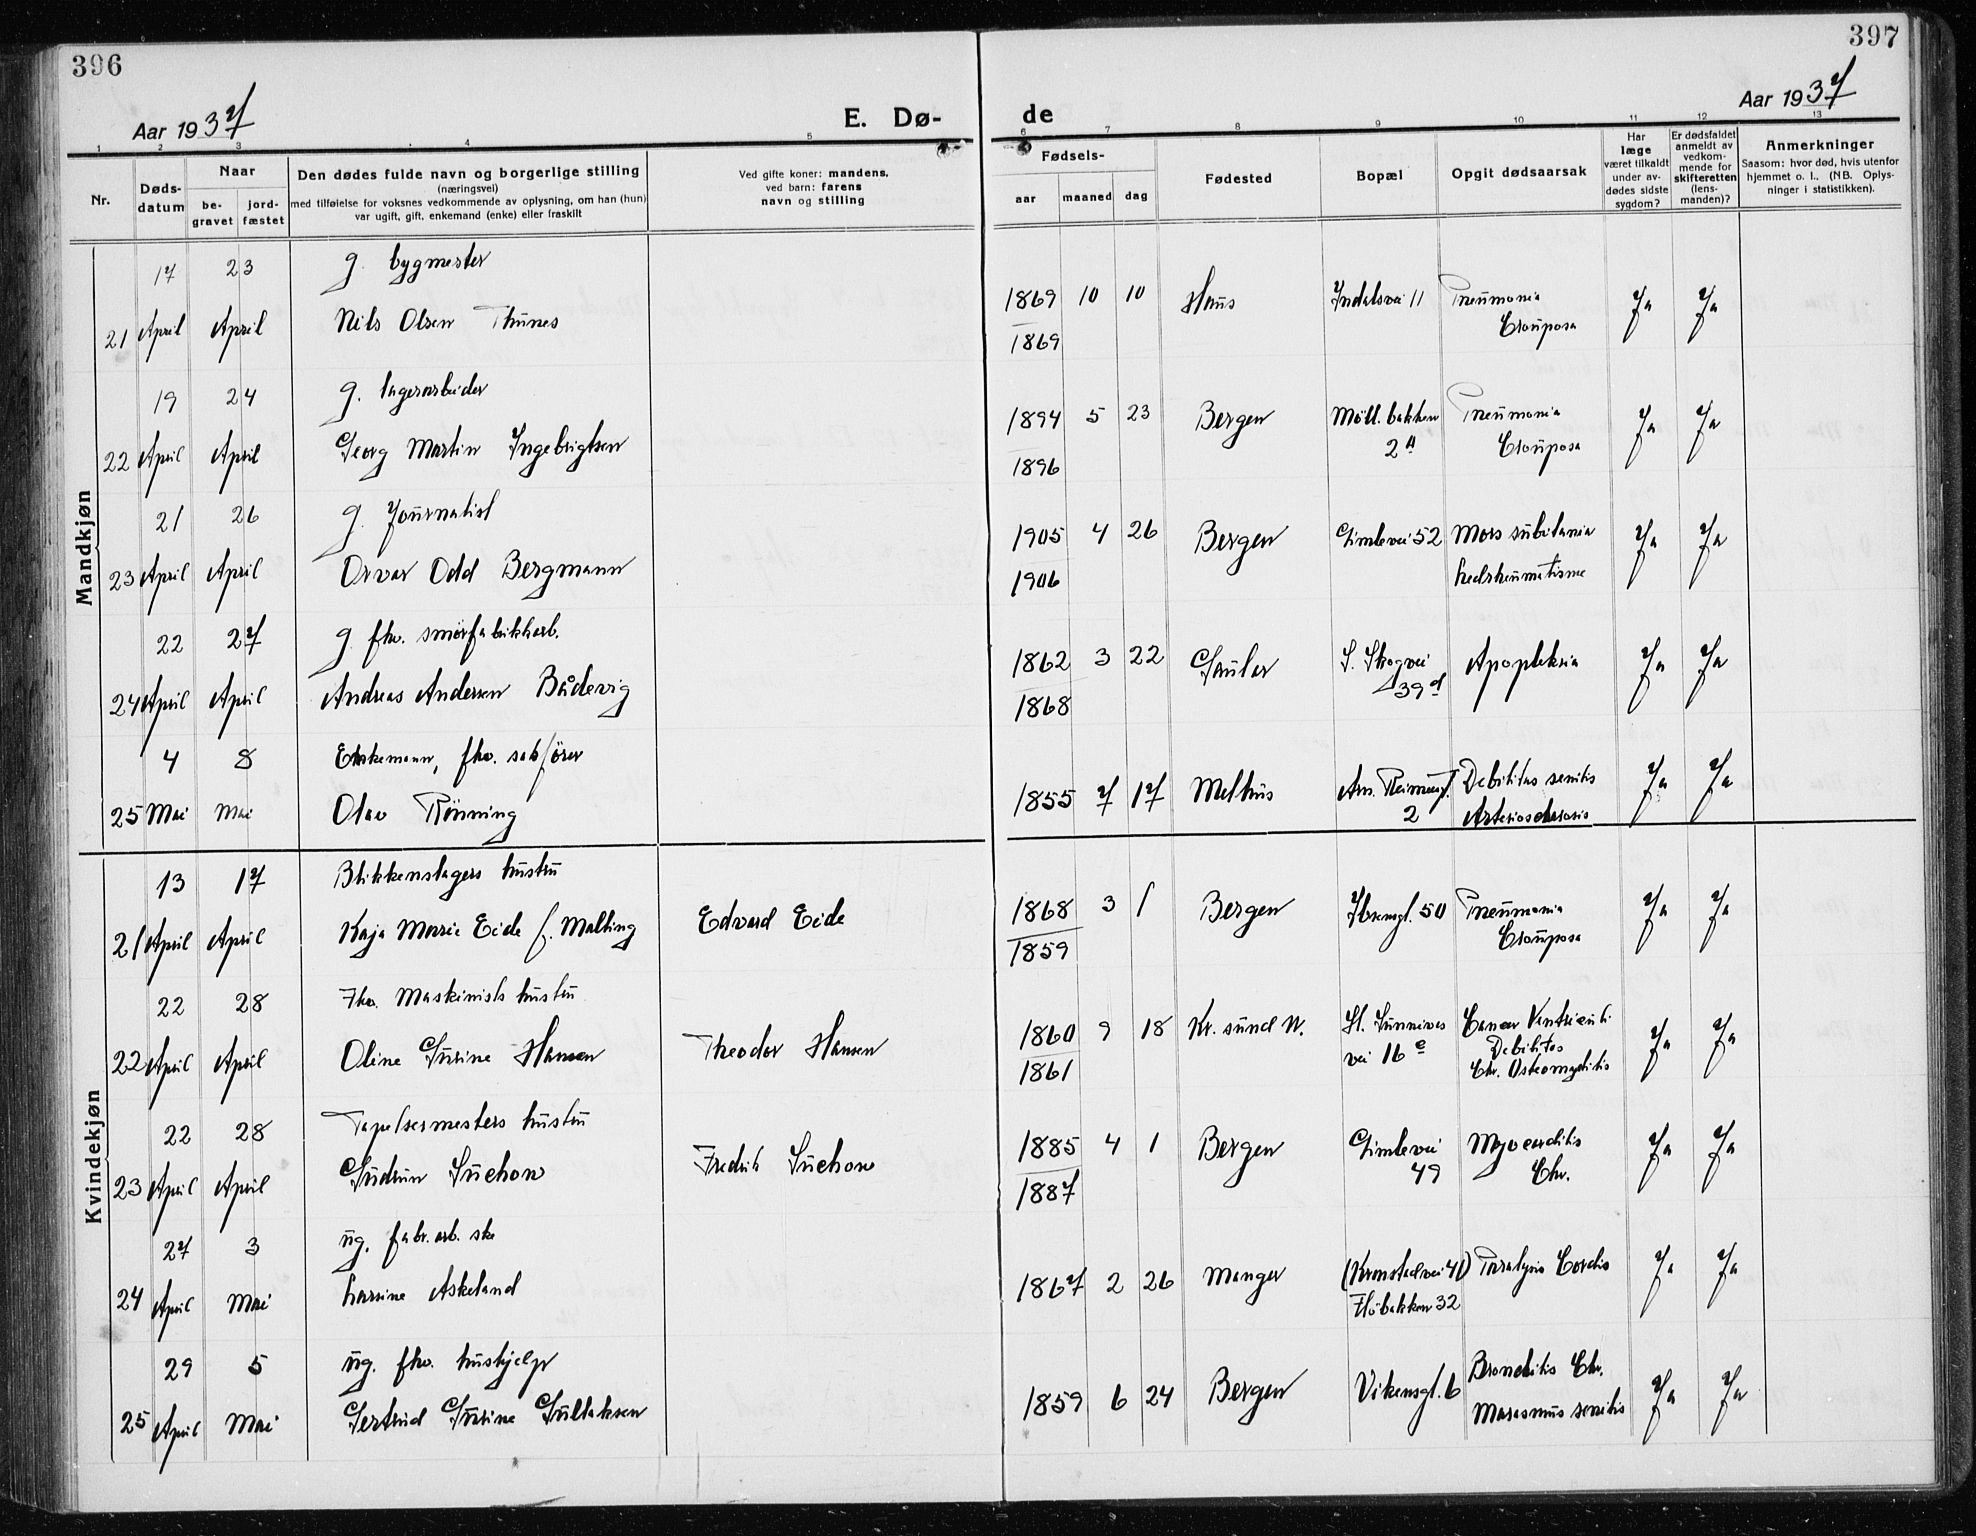 396
397
Aar 1937
E. Dø-
de
Aar 1937
1 2 3 4 5 6 7 8 9 10 11 12 13
Nr.
Døds-
datum
Naar
be-
gravet
jord-
fæstet
Den dødes fulde navn og borgerlige stilling
(næringsvei)
med tilføielse for voksnes vedkommende av oplysning, om han (hun)
var ugift, gift, enkemand (enke) eller fraskilt
Ved gifte koner: mandens,
ved barn: farens
navn og stilling
Fødsels-
aar maaned dag
Fødested
Bopæl
Opgit dødsaarsak
Har
læge
været tilkaldt
under av-
dødes sidste
sygdom?
Er dødsfaldet
anmeldt av
vedkom-
mende for
skifteretten
(lens-
manden)?
Anmerkninger
Saasom: hvor død, hvis utenfor
hjemmet o. l., (NB. Oplys-
ninger i statistikken).
Mandkjøn
17 23 g. bygmester
21 April April Nils Olsen Thunes
1869 10 10 Haus Indalsvei 11 Pneumonia Ja Ja
1869 Crouposa
19 24 g. lagerarbeider
22 April April Georg Martin Ingebrigtsen
1894 5 23 Bergen Möll. bakken Pneumonia Ja Ja
1896 2 a Crouposa
21 26 g. Journalist
23 April April Orvar Odd Bergmann
1905 4 26 Bergen Gimlevei 52 Mors subitania Ja Ja
1906 Ledrheumatisme
22 27 g. fhv. smørfabrikkarb.
24 April April Andreas Andersen Bådevig
1862 3 22 Gaular S. Skogvei Apopleksia Ja Ja
1868 39 d
4 8 Enkemann, fhv. sakfører
25 Mai Mai Olav Rönning
1855 7 17 Melhus Am. Reimersgt. Debilitas senilis Ja Ja
2 Arteriosclerosis
Kvindekjøn
13 17 Blikkenslagers hustru
21 April April Kaja Marie Eide f. Malting Edvard Eide
1868 3 1 Bergen Ibsensgt. 50 Pneumonia Ja Ja
1859 Crouposa
22 28 Fhv. Maskinists hustru
22 April April Oline Gurine Hansen Theodor Hansen
1860 9 18 Kr. sund N. St. Sunnives Cancer Ventriculi Ja Ja
1861 vei 16 e Debilitas
Chr. Osteomyelitis
22 28 Tapetsermesters hustru
23 April April Gudrun Suchow Fredrik Suchow
1885 4 1 Bergen Gimlevei Myocarditis Ja Ja
1887 49 Chr.
27 3 ug. fabr. arb. ske
24 April Mai Larsine Askeland
1867 2 26 Manger (Kronstadvei 41) Paralysis Cordis Ja Ja
Fløbakken 32
29 5 ug. fhv. hushjelp
25 April Mai Gertrud Gurine Gullaksen
1859 6 24 Bergen Vikensgt. 6 Bronchitis Chr. Ja Ja
Marasmus senilis